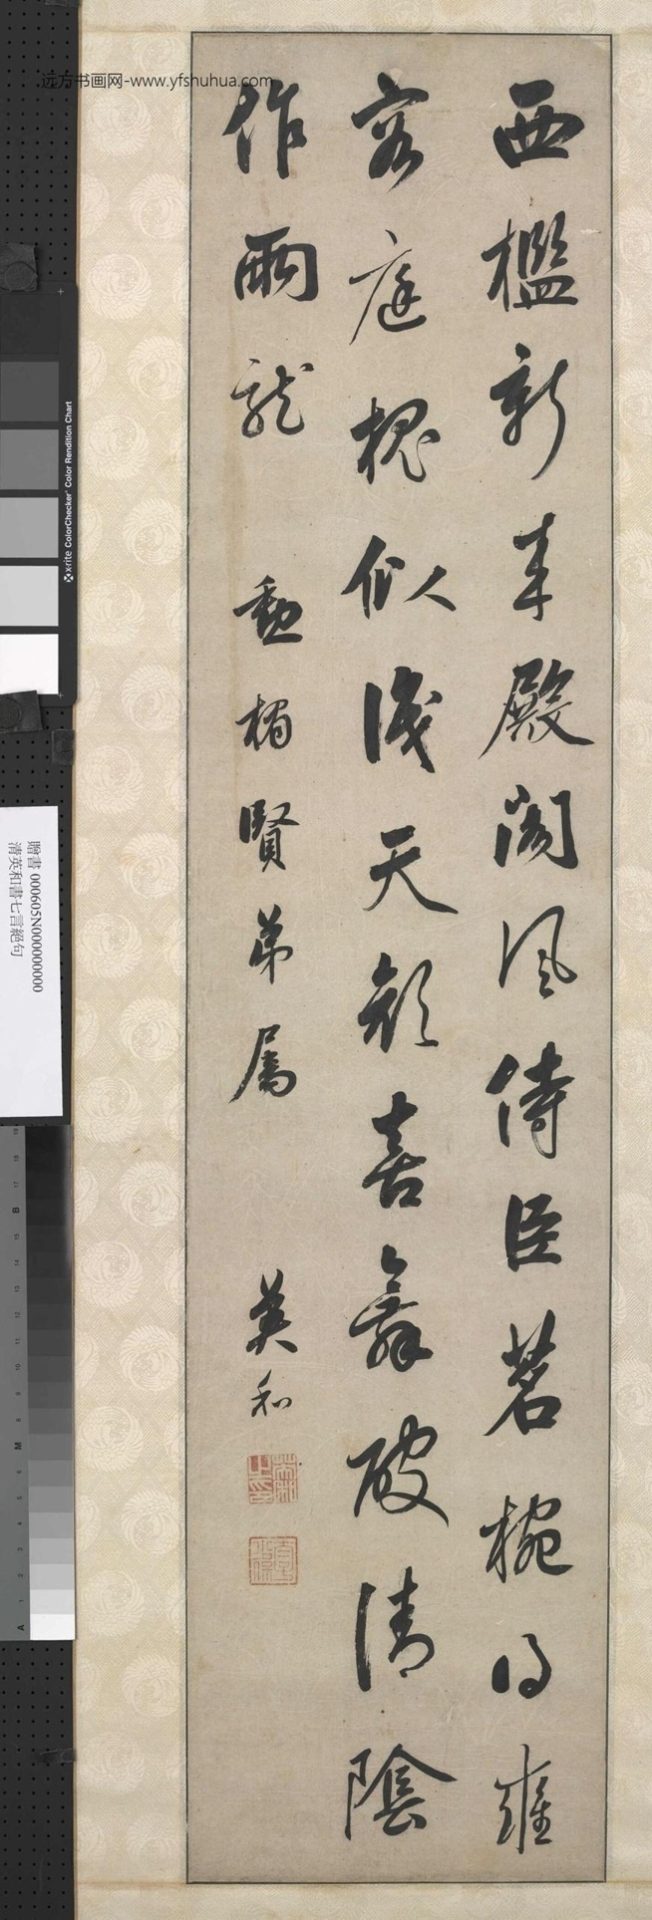 西檻新來殿閣風侍臣茗椀得雍
容庭槐似識天顏喜舞破清陰
作兩龍
勤楣賢弟屬
英和
远方书画网-www.yfshuhua.com
x-rite ColorChecker Color Rendition Chart
贈書 000605N000000000
清英和書七言絕句